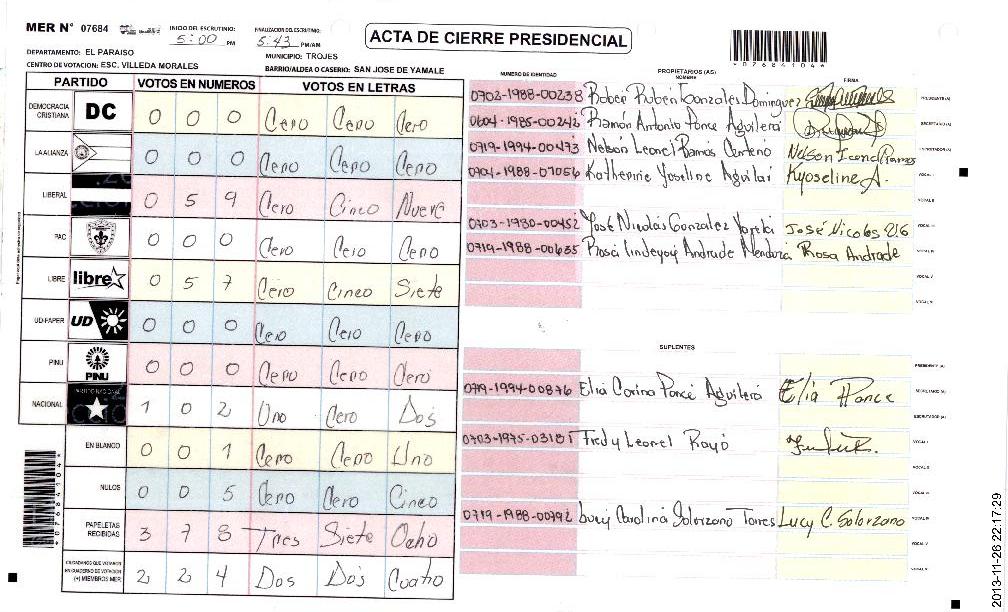 MER N° 07684
INICIO DEL ESCRUTINIO: 5:00 PM
FINALIZACION DEL ESCRUTINIO: 5:43 PM/AM
ACTA DE CIERRE PRESIDENCIAL
*07684104*
DEPARTAMENTO: EL PARAISO
MUNICIPIO: TROJES
CENTRO DE VOTACION: ESC. VILLEDA MORALES
BARRIO/ALDEA O CASERIO: SAN JOSE DE YAMALE
PARTIDO VOTOS EN NUMEROS VOTOS EN LETRAS
DEMOCRACIA CRISTIANA DC 0 0 0 Cero Cero Cero
LA ALIANZA 0 0 0 Cero Cero Cero
LIBERAL 0 5 9 Cero Cinco Nueve
PAC 0 0 0 Cero Cero Cero
LIBRE libre 0 5 7 Cero Cinco Siete
UD-FAPER UD 0 0 0 Cero Cero Cero
PINU PINU 0 0 0 Cero Cero Cero
NACIONAL PARTIDO NACIONAL 1 0 2 Uno Cero Dos
EN BLANCO 0 0 1 Cero Cero Uno
NULOS 0 0 5 Cero Cero Cinco
PAPELETAS RECIBIDAS 3 7 8 Tres Siete Ocho
CIUDADANOS QUE VOTARON EN CUADERNO DE VOTACION (+) MIEMBROS MER 2 2 4 Dos Dos Cuatro
*07684104*
PROPIETARIOS (AS)
NUMERO DE IDENTIDAD NOMBRE FIRMA
0702-1988-00238 Rober Rubén Gonzales Dominguez PRESIDENTE (A)
0604-1985-00242 Ramón Antonio Ponce Aguilera SECRETARIO (A)
0719-1994-00473 Nelson Leonel Ramos Centeno Nelson Leonel Ramos ESCRUTADOR (A)
0704-1988-01056 Katherine Yoseline Aguilar Kyoseline A. VOCAL I
VOCAL II
0703-1980-00452 José Nicolás Gonzalez Varela José Nicolas VOCAL III
0719-1988-00635 Rosa Andrade Mendoza Rosa Andrade VOCAL IV
VOCAL V
VOCAL VI
SUPLENTES
PRESIDENTE (A)
0719-1994-00876 Elia Corina Ponce Aguilera Elia Ponce SECRETARIO (A)
ESCRUTADOR (A)
0703-1975-03181 Fredy Leonel Rayo VOCAL I
VOCAL II
VOCAL III
0719-1988-00792 Lucy Carolina Solorzano Torres Lucy C. Solorzano VOCAL IV
VOCAL V
VOCAL VI
2013-11-26 22:17:29